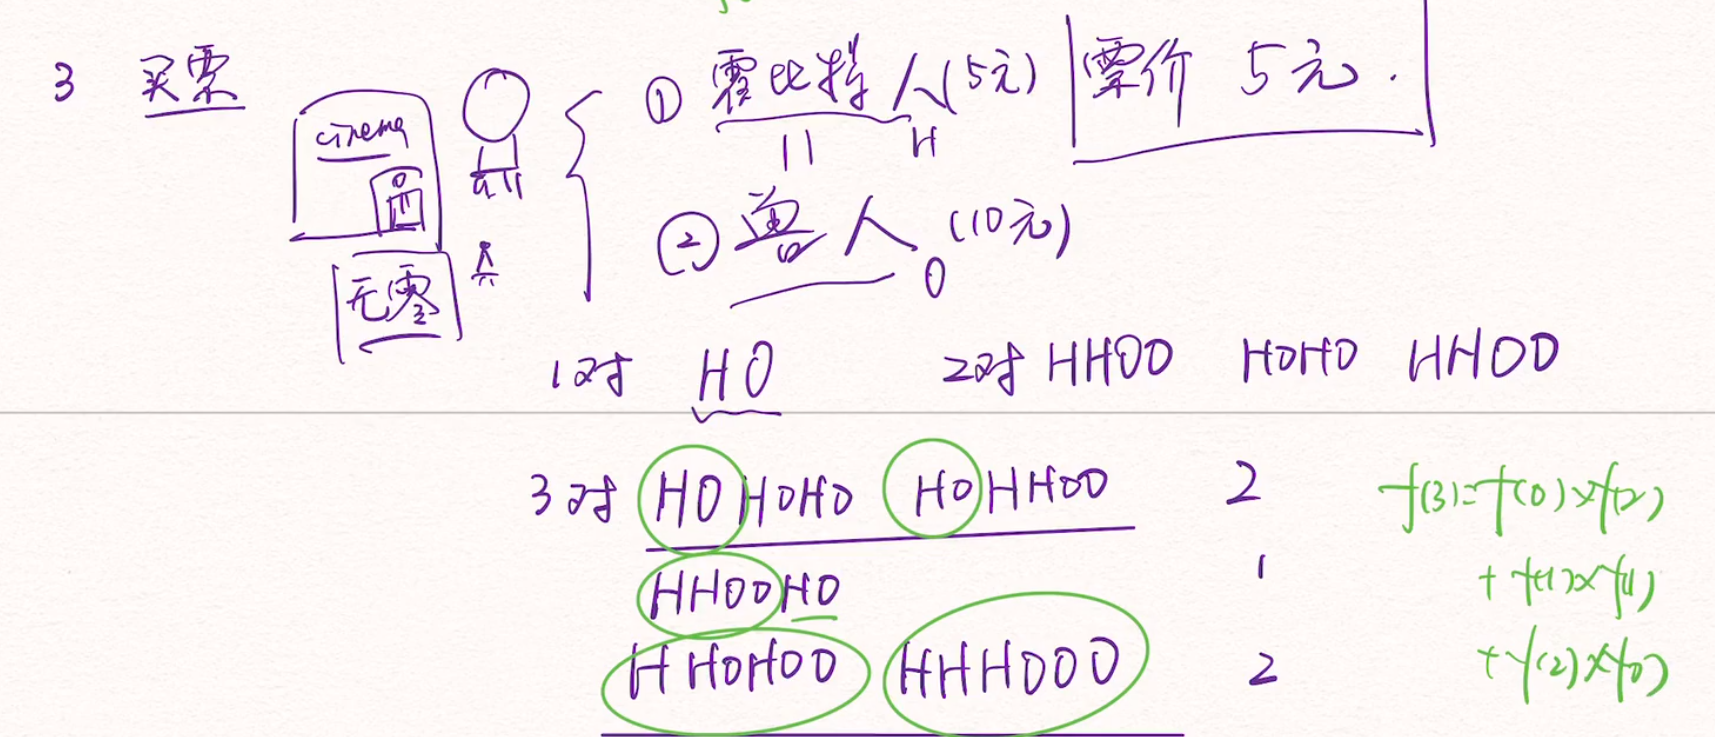 3 买票
cinema
无零
① 霍比特人(5元)
H
票价 5元.
② 兽人 (10元)
O
1对 HO 2对 HHOO HOHO HHOO
3对 HOHOHO HOHHOO 2 f(3)=f(0)×f(2)
HHOOHO 1 + f(1)×f(1)
HHOHOO HHHOOO 2 + f(2)×f(0)